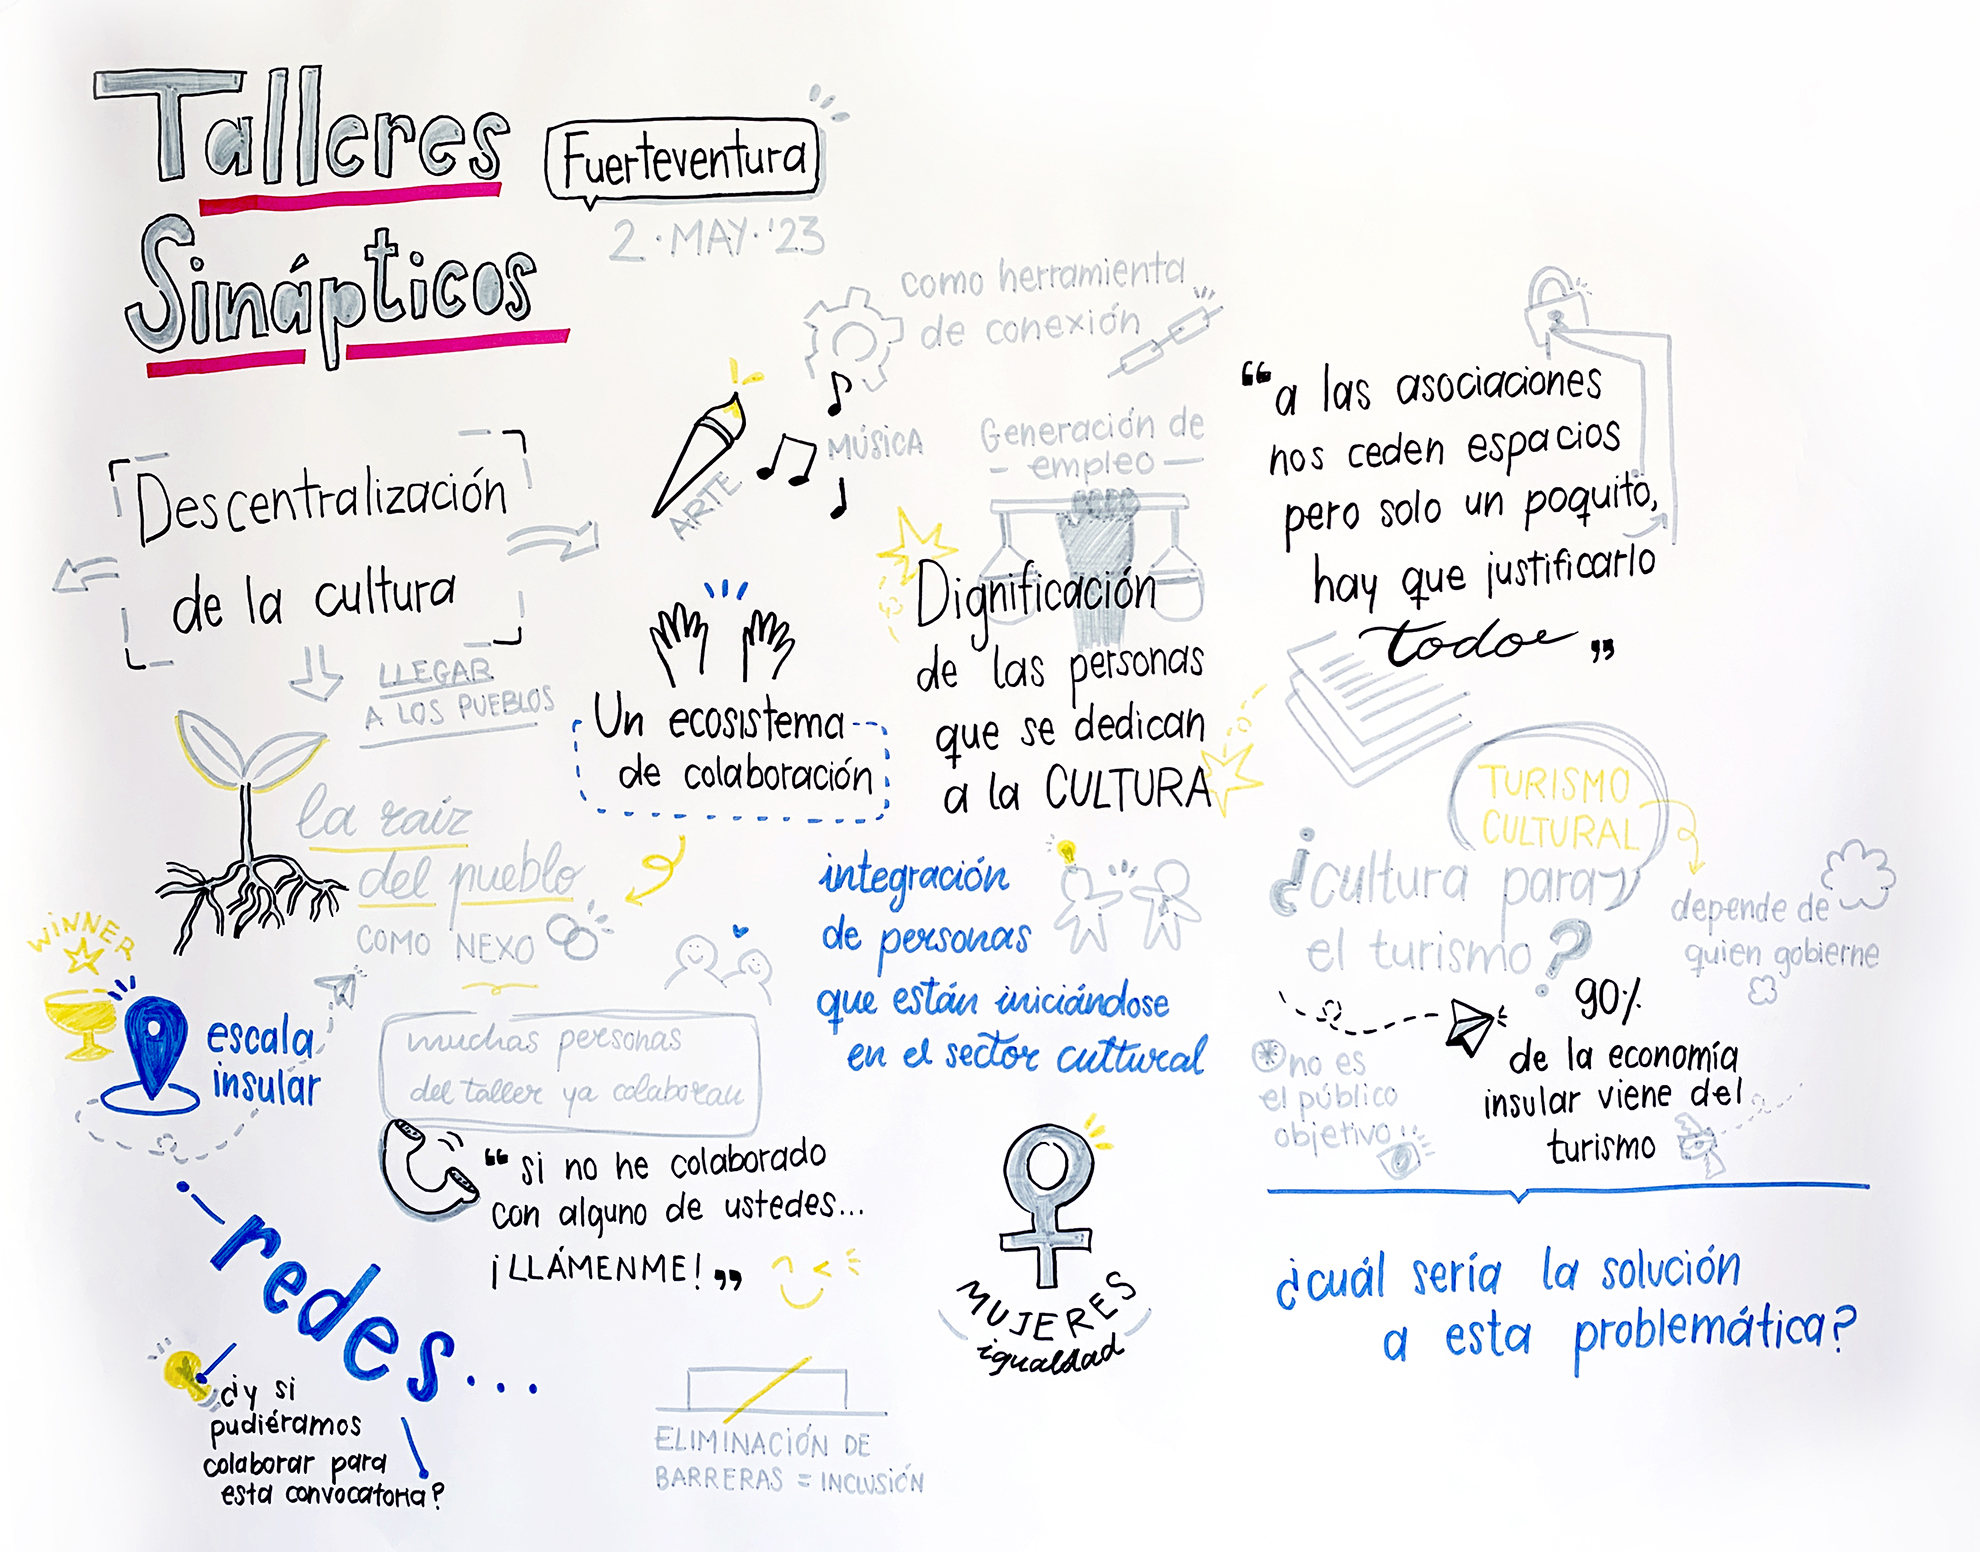 Talleres
Sinápticos
Fuerteventura
2·MAY·'23
como herramienta
de conexión
ARTE
MÚSICA
Descentralización
de la cultura
LLEGAR
A LOS PUEBLOS
la raíz
del pueblo
COMO NEXO
Un ecosistema
de colaboración
Generación de
empleo
Dignificación
de las personas
que se dedican
a la CULTURA
“a las asociaciones
nos ceden espacios
pero solo un poquito,
hay que justificarlo
todo”
TURISMO
CULTURAL
¿cultura para
el turismo?
depende de
quien gobierne
90%
de la economía
insular viene del
turismo
no es
el público
objetivo
¿cuál sería la solución
a esta problemática?
integración
de personas
que están iniciándose
en el sector cultural
WINNER
escala
insular
muchas personas
del taller ya colaboran
“si no he colaborado
con alguno de ustedes...
¡LLÁMENME!”
redes...
¿y si
pudiéramos
colaborar para
esta convocatoria?
MUJERES
igualdad
ELIMINACIÓN DE
BARRERAS = INCLUSIÓN